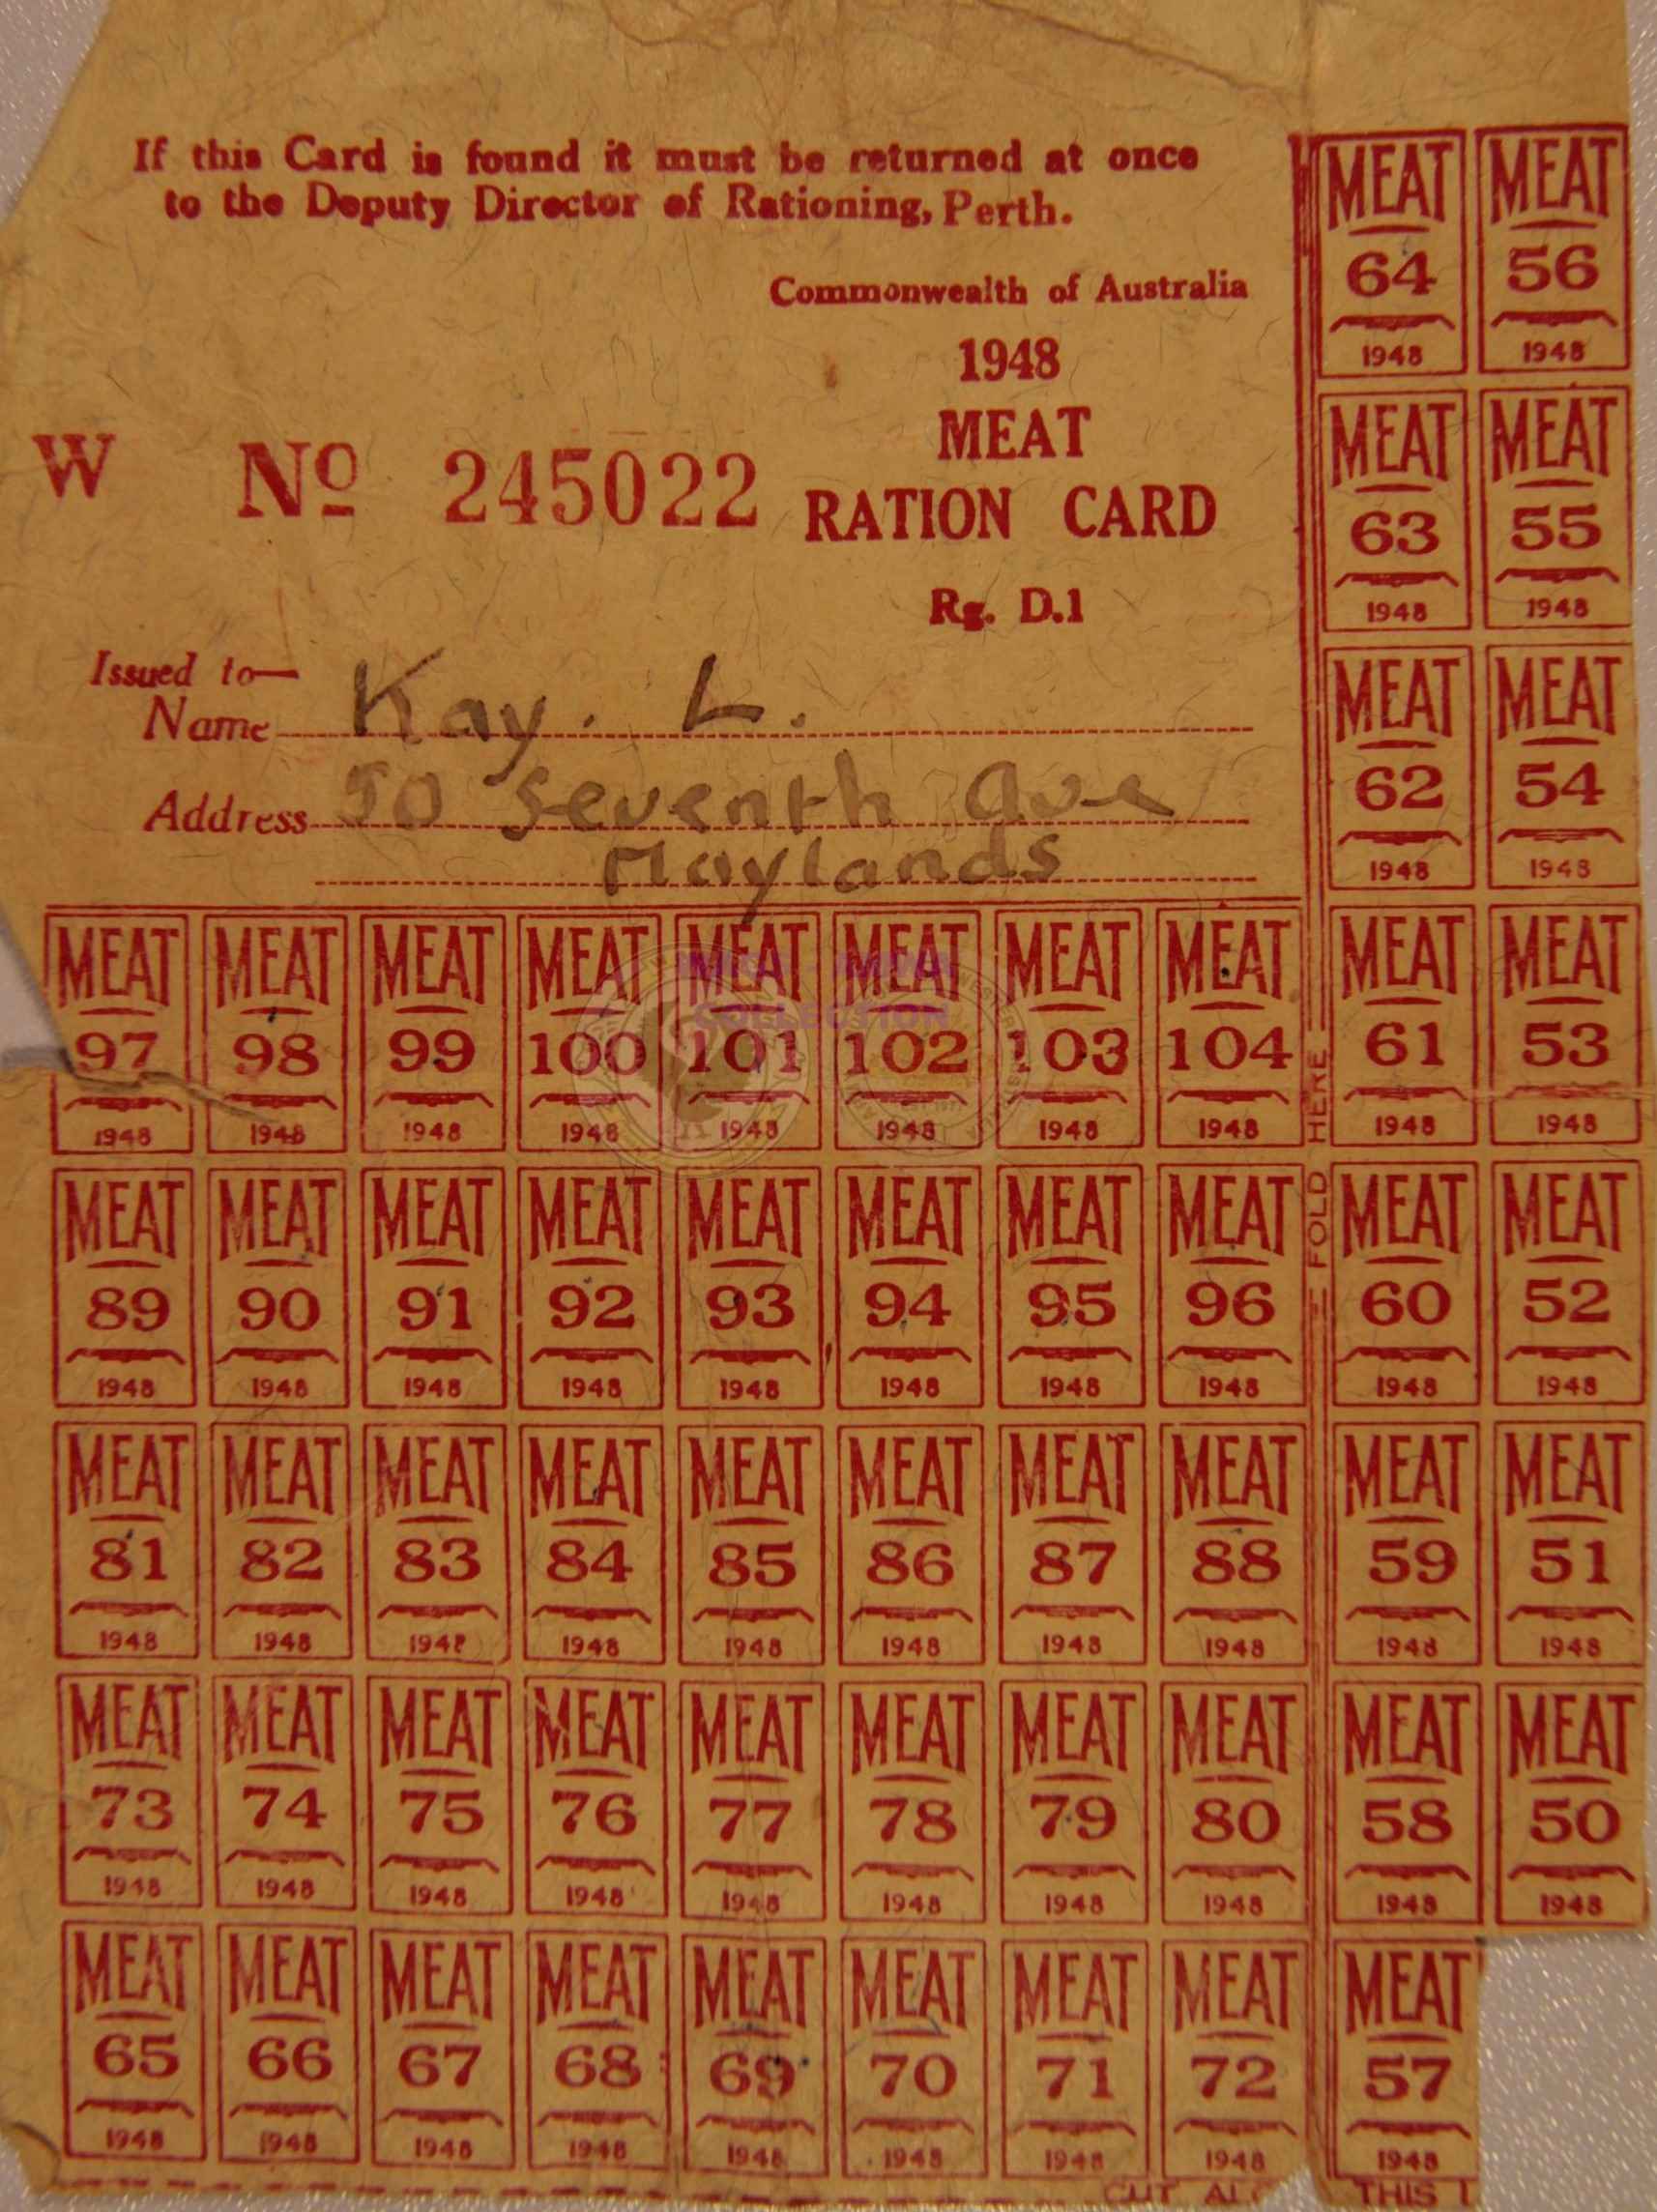 If this Card is found it must be returned at once
to the Deputy Director of Rationing, Perth.
Commonwealth of Australia
1948
MEAT
RATION CARD
W No 245022
Rg. D.1
Issued to—
Name Kay. L.
Address 50 Seventh Ave
Maylands
MEAT MEAT
64 56
1948 1948
MEAT MEAT
63 55
1948 1948
MEAT MEAT
62 54
1948 1948
MEAT MEAT MEAT MEAT MEAT MEAT MEAT MEAT MEAT MEAT
97 98 99 100 101 102 103 104 61 53
1948 1948 1948 1948 1948 1948 1948 1948 1948 1948
FOLD HERE
MEAT MEAT MEAT MEAT MEAT MEAT MEAT MEAT MEAT MEAT
89 90 91 92 93 94 95 96 60 52
1948 1948 1948 1948 1948 1948 1948 1948 1948 1948
MEAT MEAT MEAT MEAT MEAT MEAT MEAT MEAT MEAT MEAT
81 82 83 84 85 86 87 88 59 51
1948 1948 1948 1948 1948 1948 1948 1948 1948 1948
MEAT MEAT MEAT MEAT MEAT MEAT MEAT MEAT MEAT MEAT
73 74 75 76 77 78 79 80 58 50
1948 1948 1948 1948 1948 1948 1948 1948 1948 1948
MEAT MEAT MEAT MEAT MEAT MEAT MEAT MEAT MEAT
65 66 67 68 69 70 71 72 57
1948 1948 1948 1948 1948 1948 1948 1948 1948
CUT THIS
COLLECTION